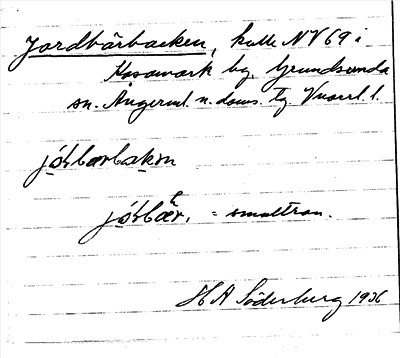 Jordbärbacken, kulle NV 69 i
Kasamark by, Grundsunda
sn. Ångerml. n. doms. tg Vnorrl. l.
jo̱ɽbærbakɐn
jo̱ɽbær, = smultron.
H A Söderberg 1936